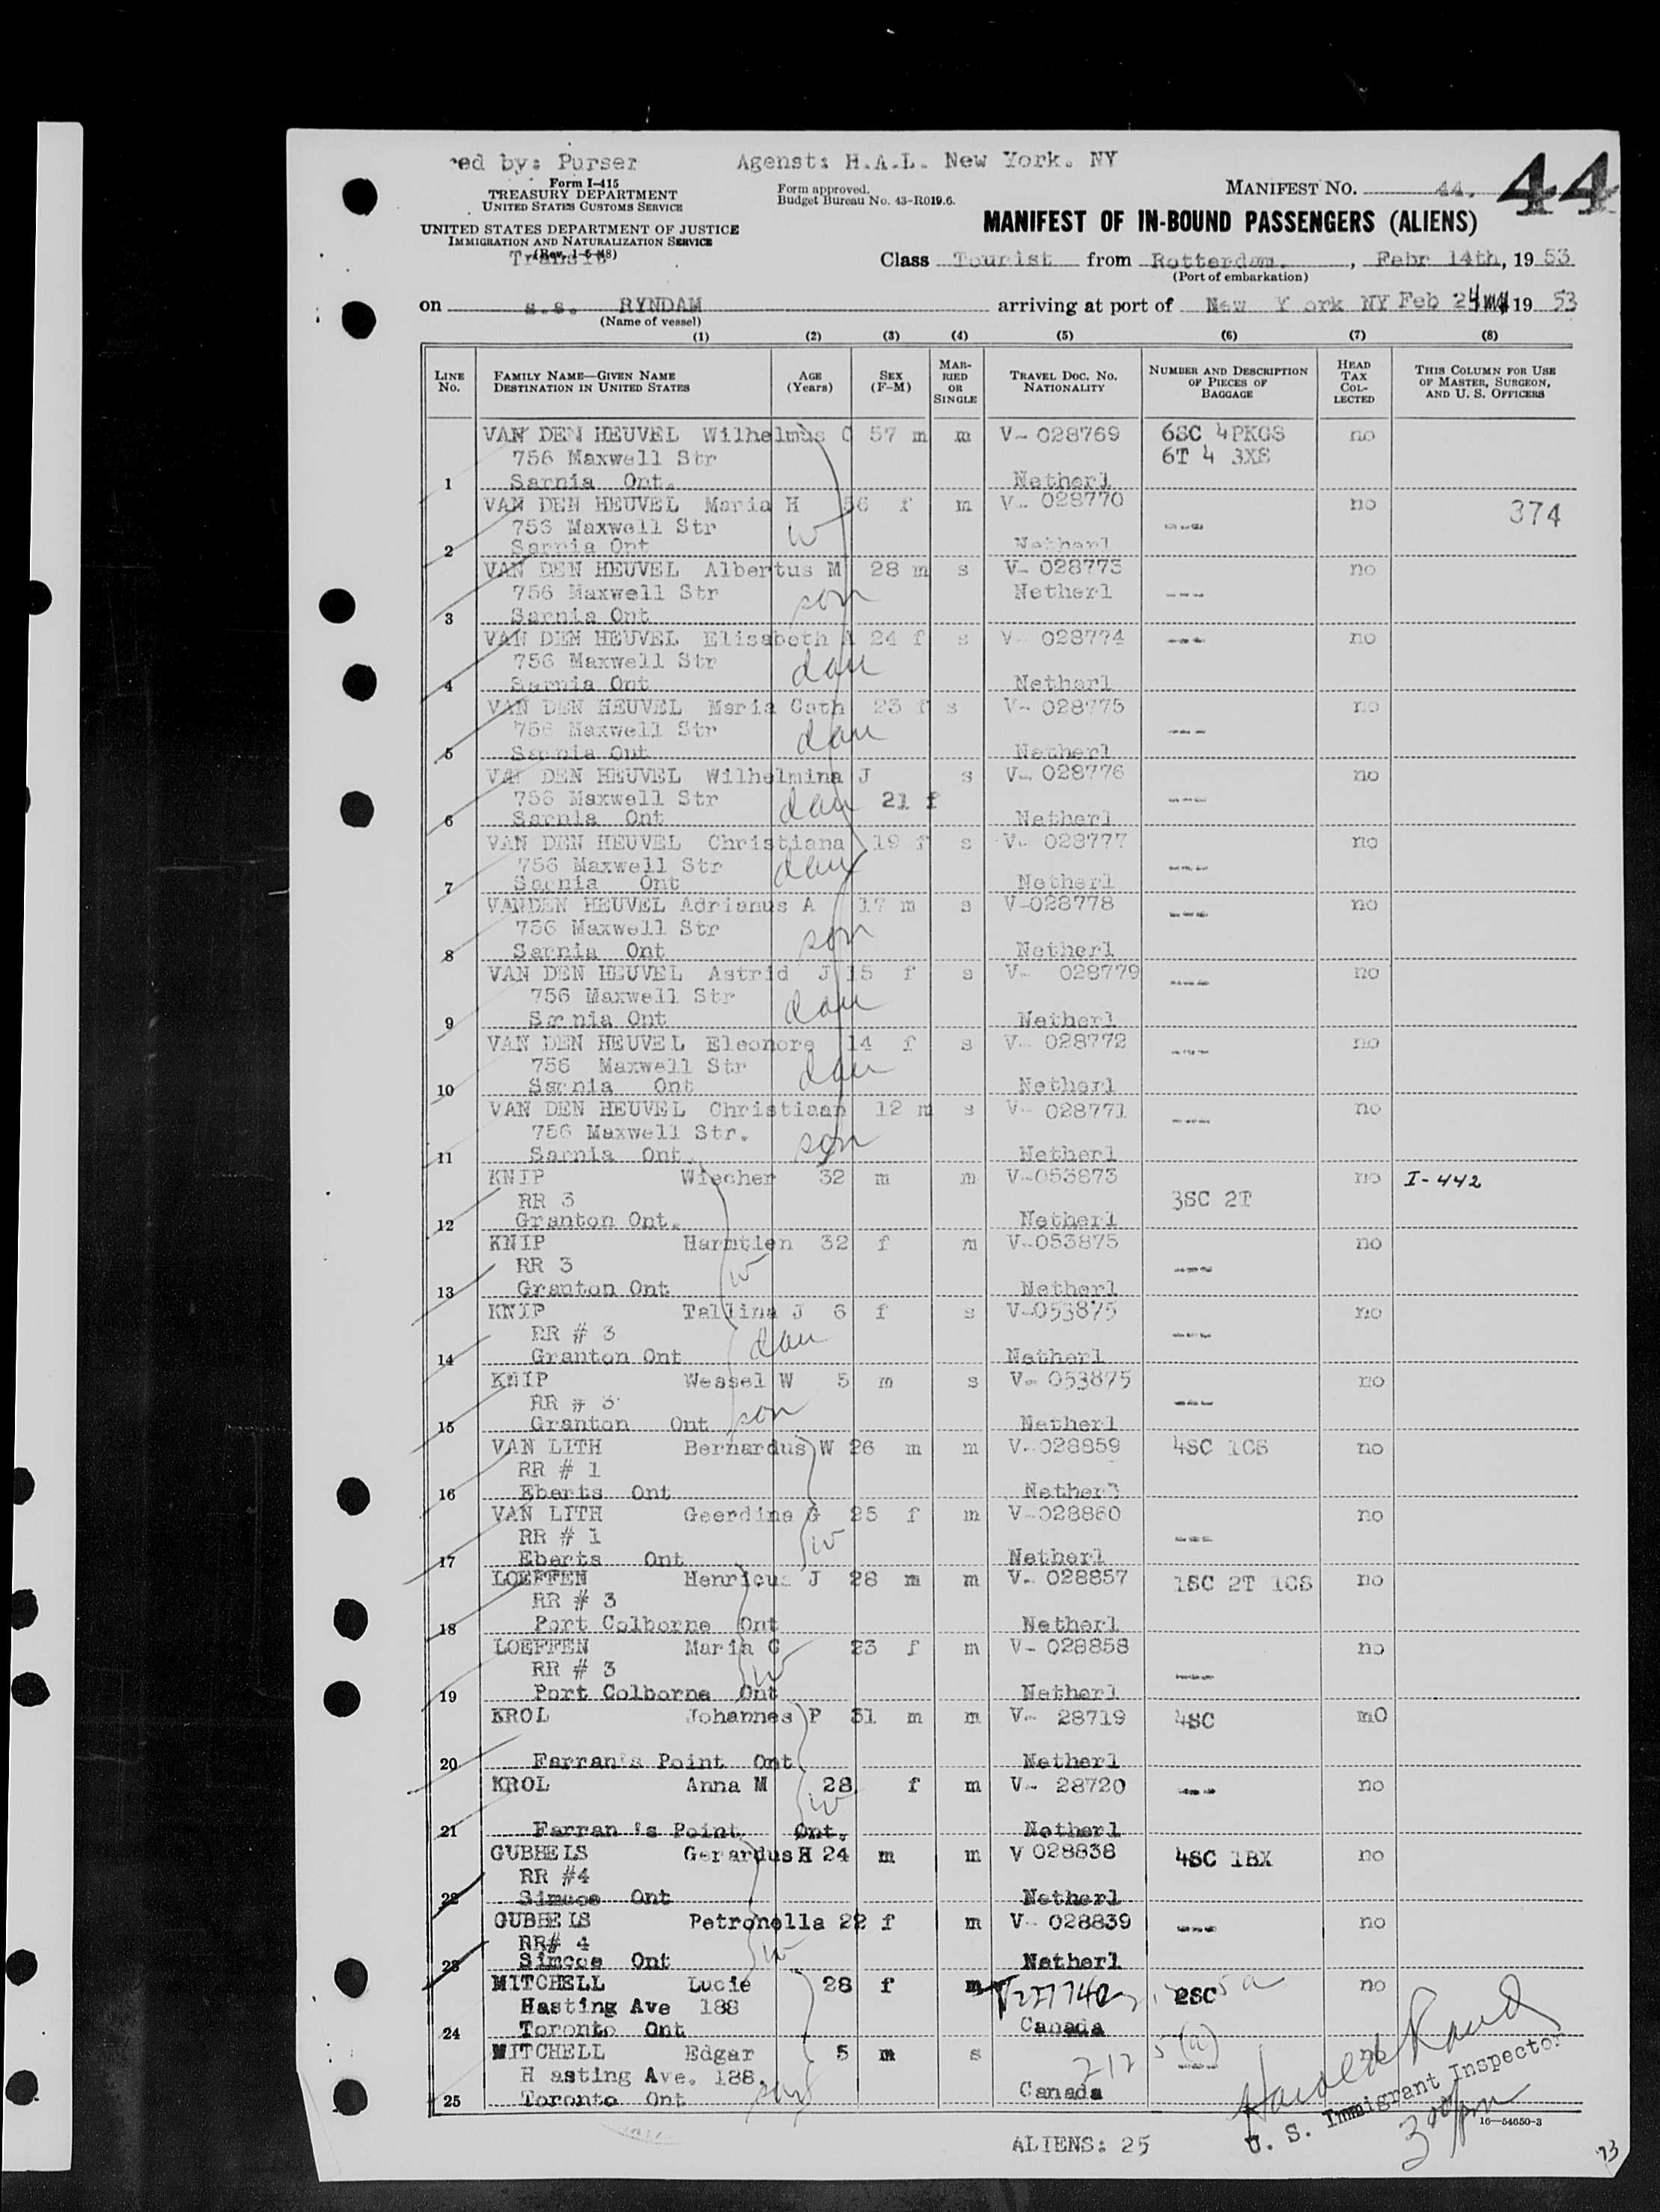 red by: Purser Agenst: H.A.L. New York. NY
Form I-415
TREASURY DEPARTMENT
UNITED STATES CUSTOMS SERVICE
Form approved.
Budget Bureau No. 43-R019.6.
MANIFEST NO. 44. 44
UNITED STATES DEPARTMENT OF JUSTICE
IMMIGRATION AND NATURALIZATION SERVICE
(Rev. 1-5-48)
Transit
MANIFEST OF IN-BOUND PASSENGERS (ALIENS)
Class Tourist from Rotterdam. , Febr 14th, 19 53
(Port of embarkation)
on s.s. RYNDAM arriving at port of New Y ork NY Feb 24 19 53
(Name of vessel)
(1) (2) (3) (4) (5) (6) (7) (8)
LINE No. FAMILY NAME—GIVEN NAME DESTINATION IN UNITED STATES AGE (Years) SEX (F-M) MARRIED OR SINGLE TRAVEL DOC. NO. NATIONALITY NUMBER AND DESCRIPTION OF PIECES OF BAGGAGE HEAD TAX COLLECTED THIS COLUMN FOR USE OF MASTER, SURGEON, AND U. S. OFFICERS
VAN DEN HEUVEL Wilhelmus C 57 m m V- 028769 6SC 4PKGS no
756 Maxwell Str 6T 4 3XS
1 Sarnia Ont. Netherl
VAN DEN HEUVEL Maria H 56 f m V- 028770 no 374
756 Maxwell Str w ---
2 Sarnia Ont Netherl
VAN DEN HEUVEL Albertus M 28 m s V- 028773 no
756 Maxwell Str son Netherl ---
3 Sarnia Ont
VAN DEN HEUVEL Elisabeth A 24 f s V- 028774 --- no
756 Maxwell Str dau
4 Sarnia Ont Netherl
VAN DEN HEUVEL Maria Cath 23 f s V- 028775 no
756 Maxwell Str dau ---
5 Sarnia Ont Netherl
VAN DEN HEUVEL Wilhelmina J s V- 028776 no
756 Maxwell Str dau 21 f ---
6 Sarnia Ont Netherl
VAN DEN HEUVEL Christiana 19 f s V- 028777 no
756 Maxwell Str dau ---
7 Sarnia Ont Netherl
VANDEN HEUVEL Adrianus A 17 m s V-028778 --- no
756 Maxwell Str son
8 Sarnia Ont Netherl
VAN DEN HEUVEL Astrid J 15 f s V- 028779 --- no
756 Maxwell Str dau
9 Sarnia Ont Netherl
VAN DEN HEUVEL Eleonore 14 f s V- 028772 --- no
756 Maxwell Str dau
10 Sarnia Ont Netherl
VAN DEN HEUVEL Christiaan 12 m s V- 028771 --- no
756 Maxwell Str. son
11 Sarnia Ont. Netherl
KNIP Wiecher 32 m m V-053873 no I-442
RR 3 3SC 2T
12 Granton Ont. Netherl
KNIP Harmtien 32 f m V-053875 no
RR 3 w ---
13 Granton Ont Netherl
KNIP Tallina J 6 f s V-053875 no
RR # 3 dau ---
14 Granton Ont Netherl
KNIP Wessel W 5 m s V- 053875 no
RR # 3 son ---
15 Granton Ont Netherl
VAN LITH Bernardus W 26 m m V-028859 4SC 1CS no
RR # 1
16 Eberts Ont Netherl
VAN LITH Geerdina G 25 f m V-028860 no
RR # 1 w ---
17 Eberts Ont Netherl
LOEFFEN Henricus J 28 m m V- 028857 1SC 2T 1CS no
RR # 3
18 Port Colborne Ont Netherl
LOEFFEN Maria C 23 f m V- 028858 no
RR # 3 w ---
19 Port Colborne Ont Netherl
KROL Johannes P 31 m m V- 28719 4SC mO
20 Farran's Point Ont Netherl
KROL Anna M 28 f m V- 28720 --- no
w
21 Farran 's Point Ont. Netherl
GUBBELS Gerardus H 24 m m V 028838 4SC 1BX no
RR #4
22 Simcoe Ont Netherl
GUBBELS Petronella 22 f m V- 028839 --- no
RR# 4 w
23 Simcoe Ont Netherl
MITCHELL Lucie 28 f m 2SC no
Hasting Ave 188
24 Toronto Ont Canada
MITCHELL Edgar 5 m s 212 5(a) no
H asting Ave. 188. son
25 Toronto Ont Canada
U. S. Immigrant Inspector
3 00 pm
16—54650-3
ALIENS: 25